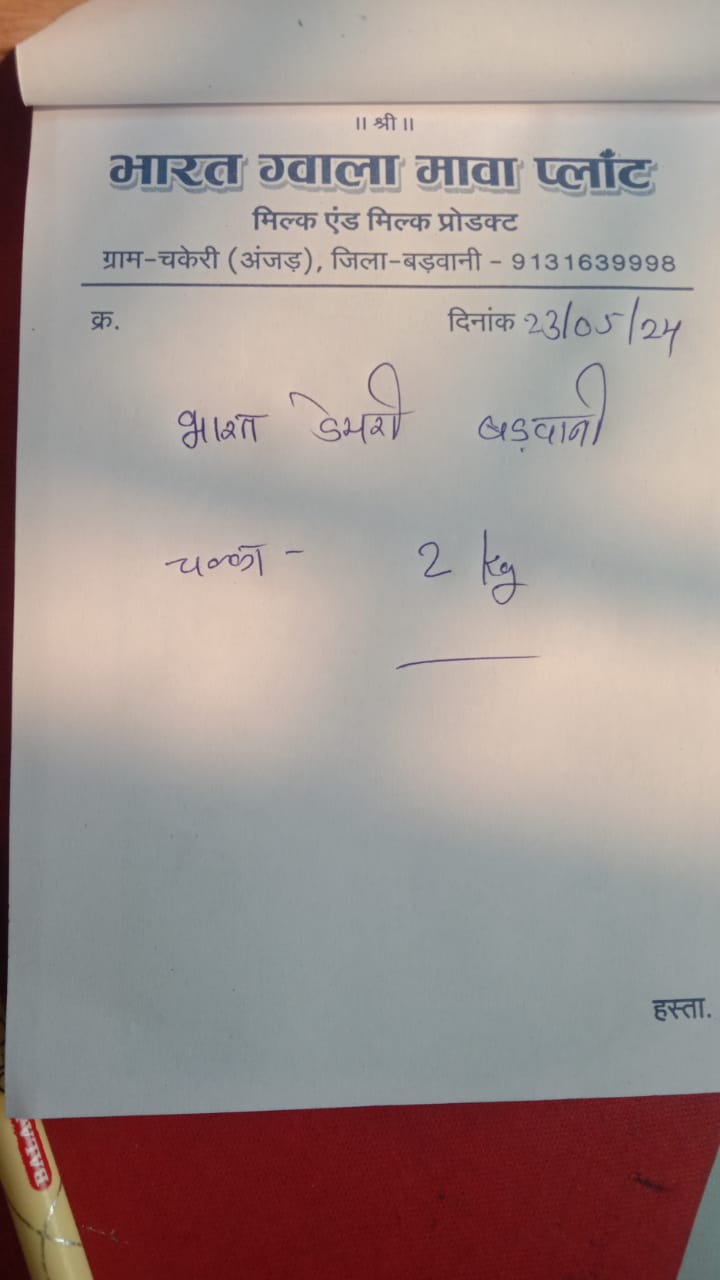 ॥ श्री ॥
भारत ग्वाला मावा प्लाँट
मिल्क एंड मिल्क प्रोडक्ट
ग्राम-चकेरी (अंजड़), जिला-बड़वानी - 9131639998
क्र. दिनांक 23/05/24
भारत डेयरी बड़वानी
चक्का - 2 kg
हस्ता.